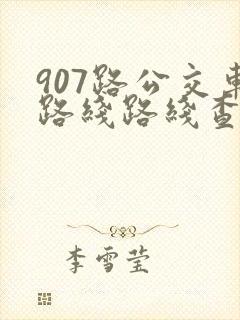 907路公交車
路綫路綫查
李雪莹